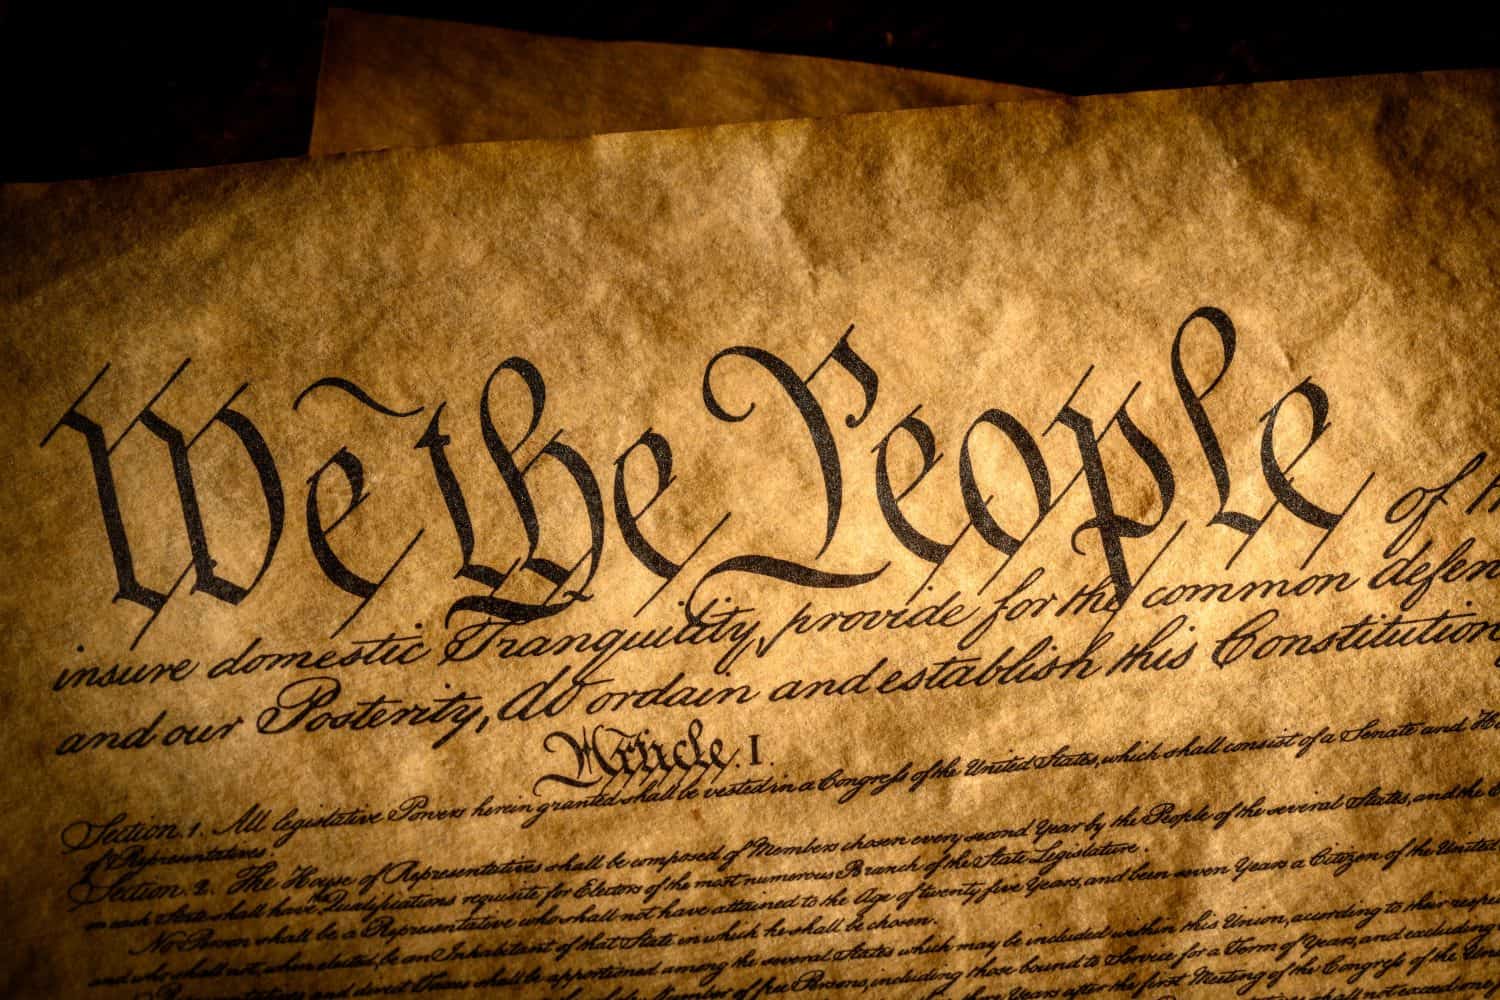 We the People of
insure domestic Tranquility, provide for the common defen
and our Posterity, do ordain and establish this Constitution
Article. I.
Section. 1. All legislative Powers herein granted shall be vested in a Congress of the United States, which shall consist of a Senate and Ho
of Representatives.
Section. 2. The House of Representatives shall be composed of Members chosen every second Year by the People of the several States, and the E
in each State shall have Qualifications requisite for Electors of the most numerous Branch of the State Legislature.
No Person shall be a Representative who shall not have attained to the Age of twenty five Years, and been seven Years a Citizen of the United
and who shall not, when elected, be an Inhabitant of that State in which he shall be chosen.
Representatives and direct Taxes shall be apportioned among the several States which may be included within this Union, according to their respe
Number of free Persons, including those bound to Service for a Term of Years, and excluding
three Years after the first Meeting of the Congress of the Un
shall not exceed one